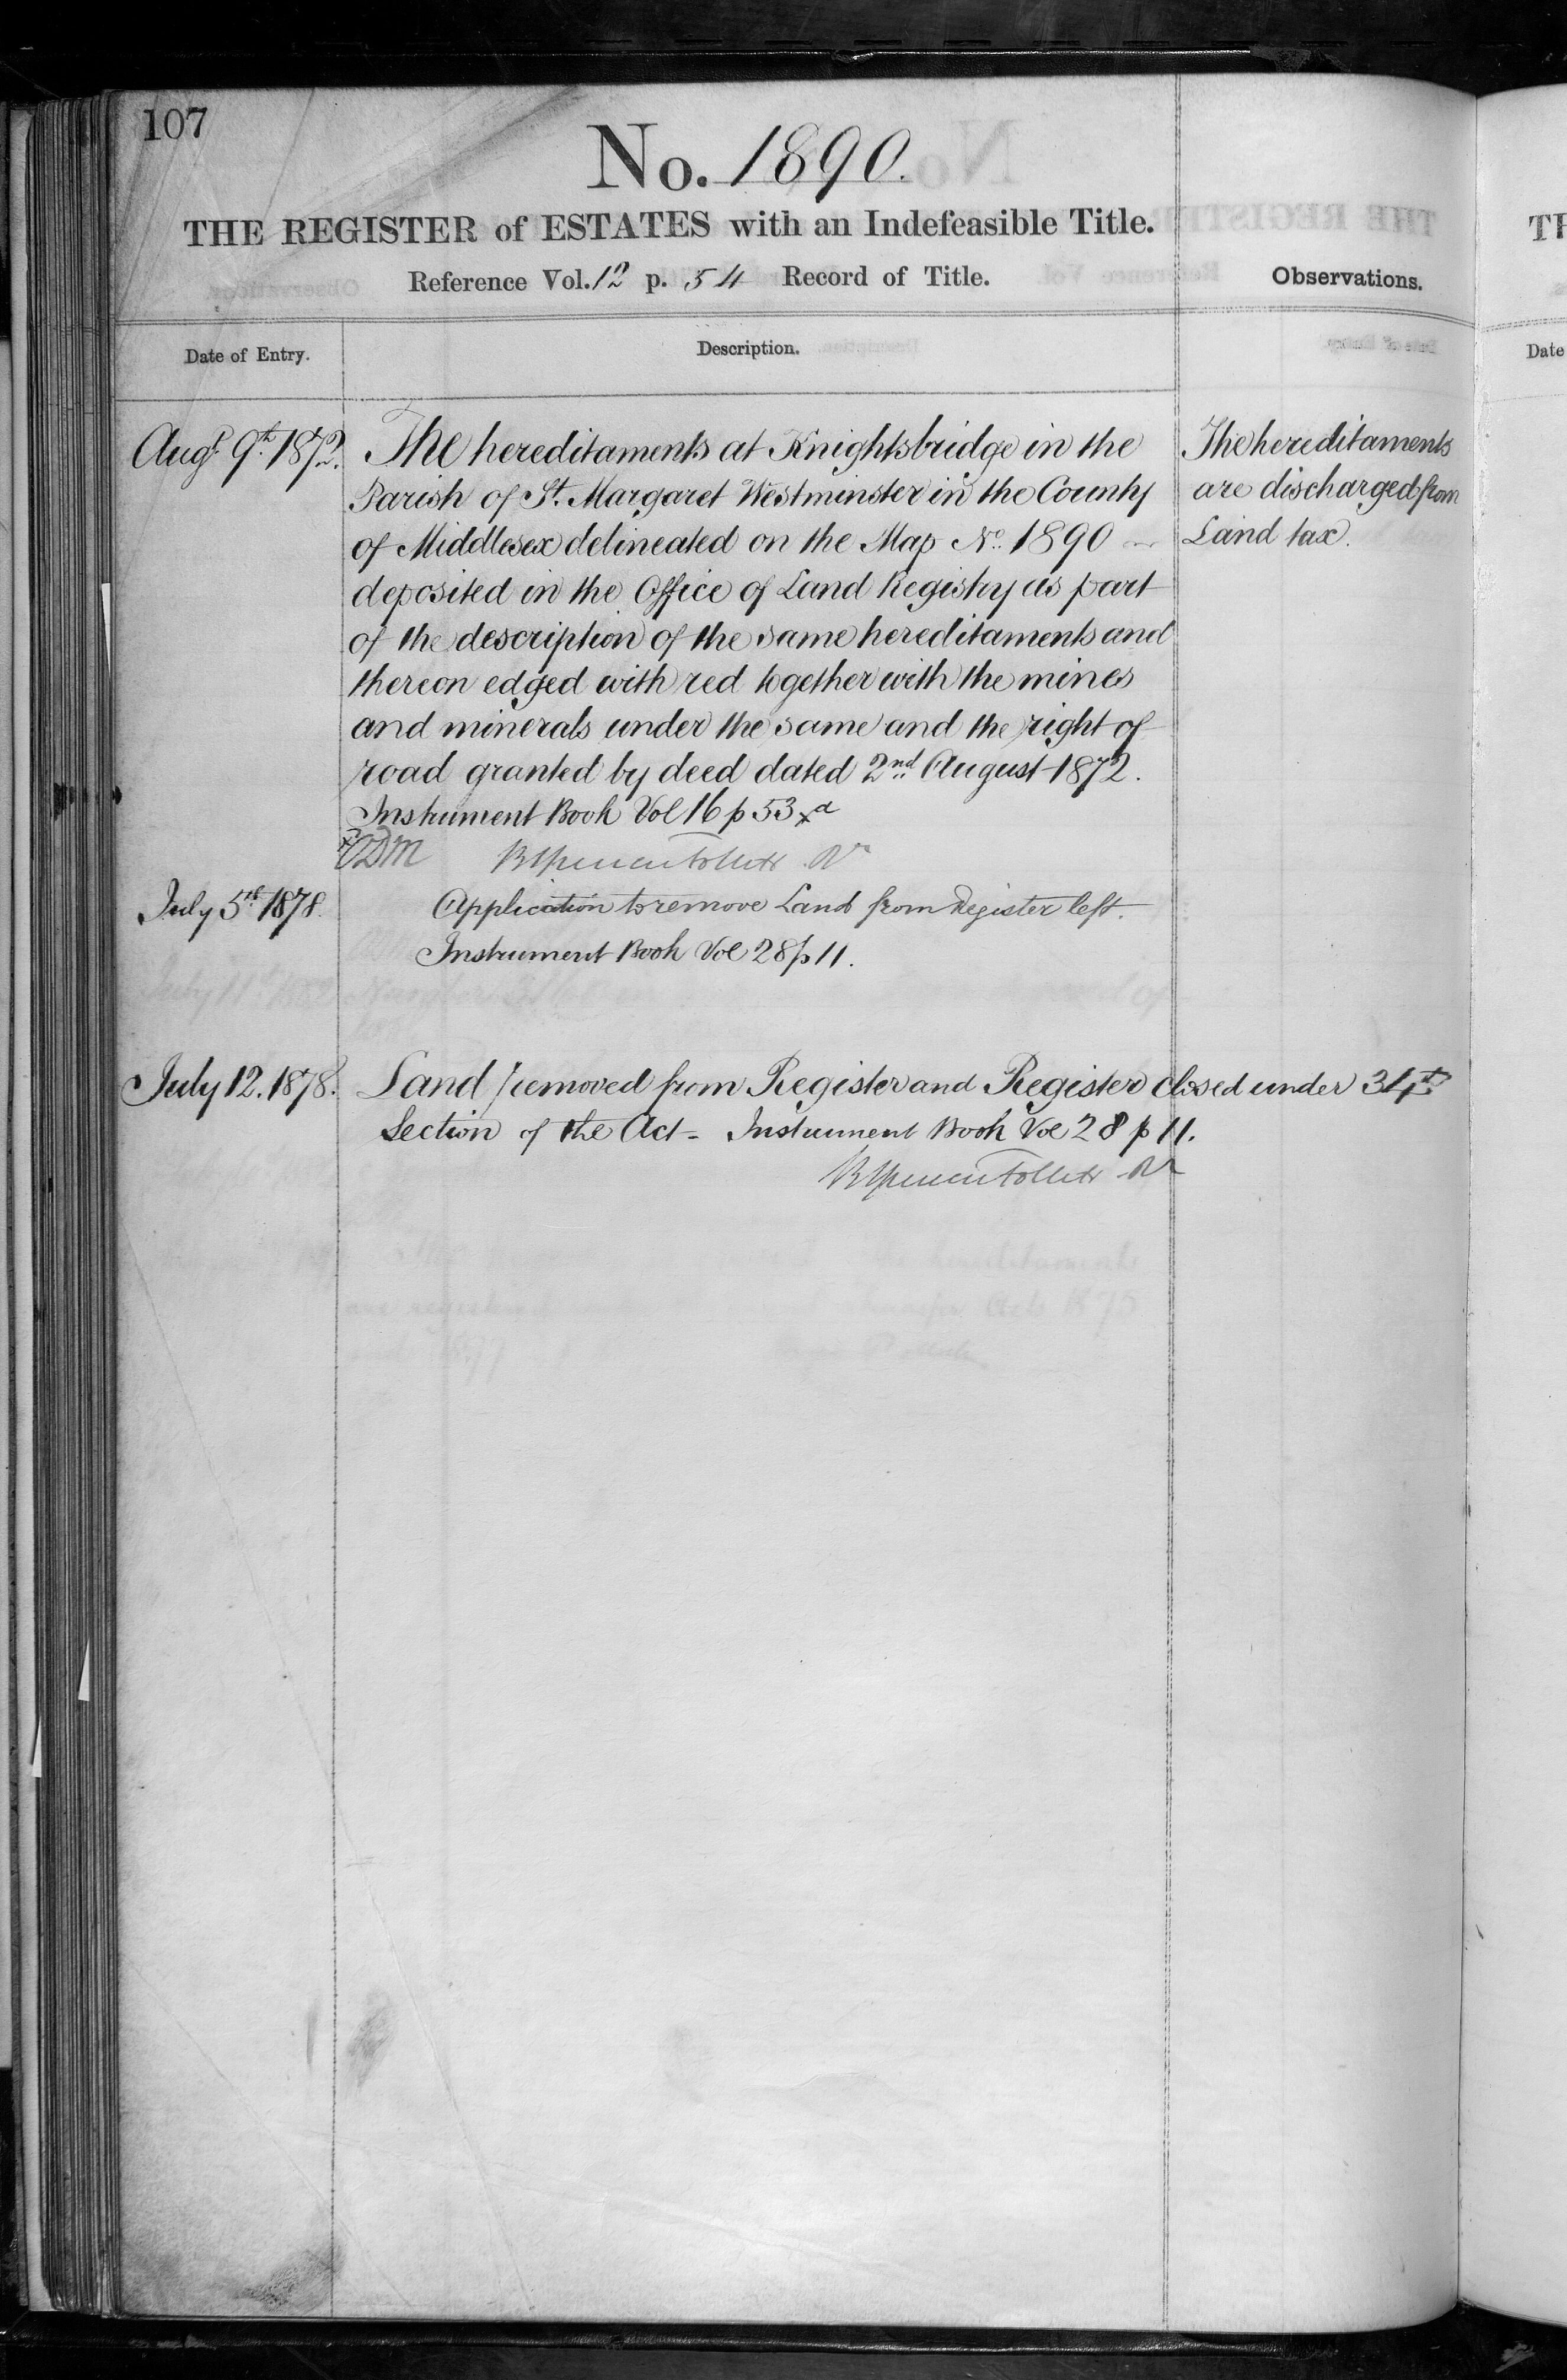 107
No. 1890.
THE REGISTER of ESTATES with an Indefeasible Title.
Reference Vol. 12 p. 54 Record of Title.
Observations.
Date of Entry.
Description.
Augt. 9th. 1872.
The hereditaments at Knightsbridge in the
Parish of St. Margaret Westminster in the County
of Middlesex delineated on the Map No. 1890
deposited in the Office of Land Registry as part
of the description of the same hereditaments and
thereon edged with red together with the mines
and minerals under the same and the right of
road granted by deed dated 2nd August 1872.
Instrument Book Vol 16 p 53 x a
The hereditaments
are discharged from
Land tax.
July 5th 1878.
Application to remove Land from Register left.
Instrument Book Vol 28 p 11.
July 12. 1878.
Land removed from Register and Register closed under 34th
Section of the Act - Instrument Book Vol 28 p 11.
TH
Date